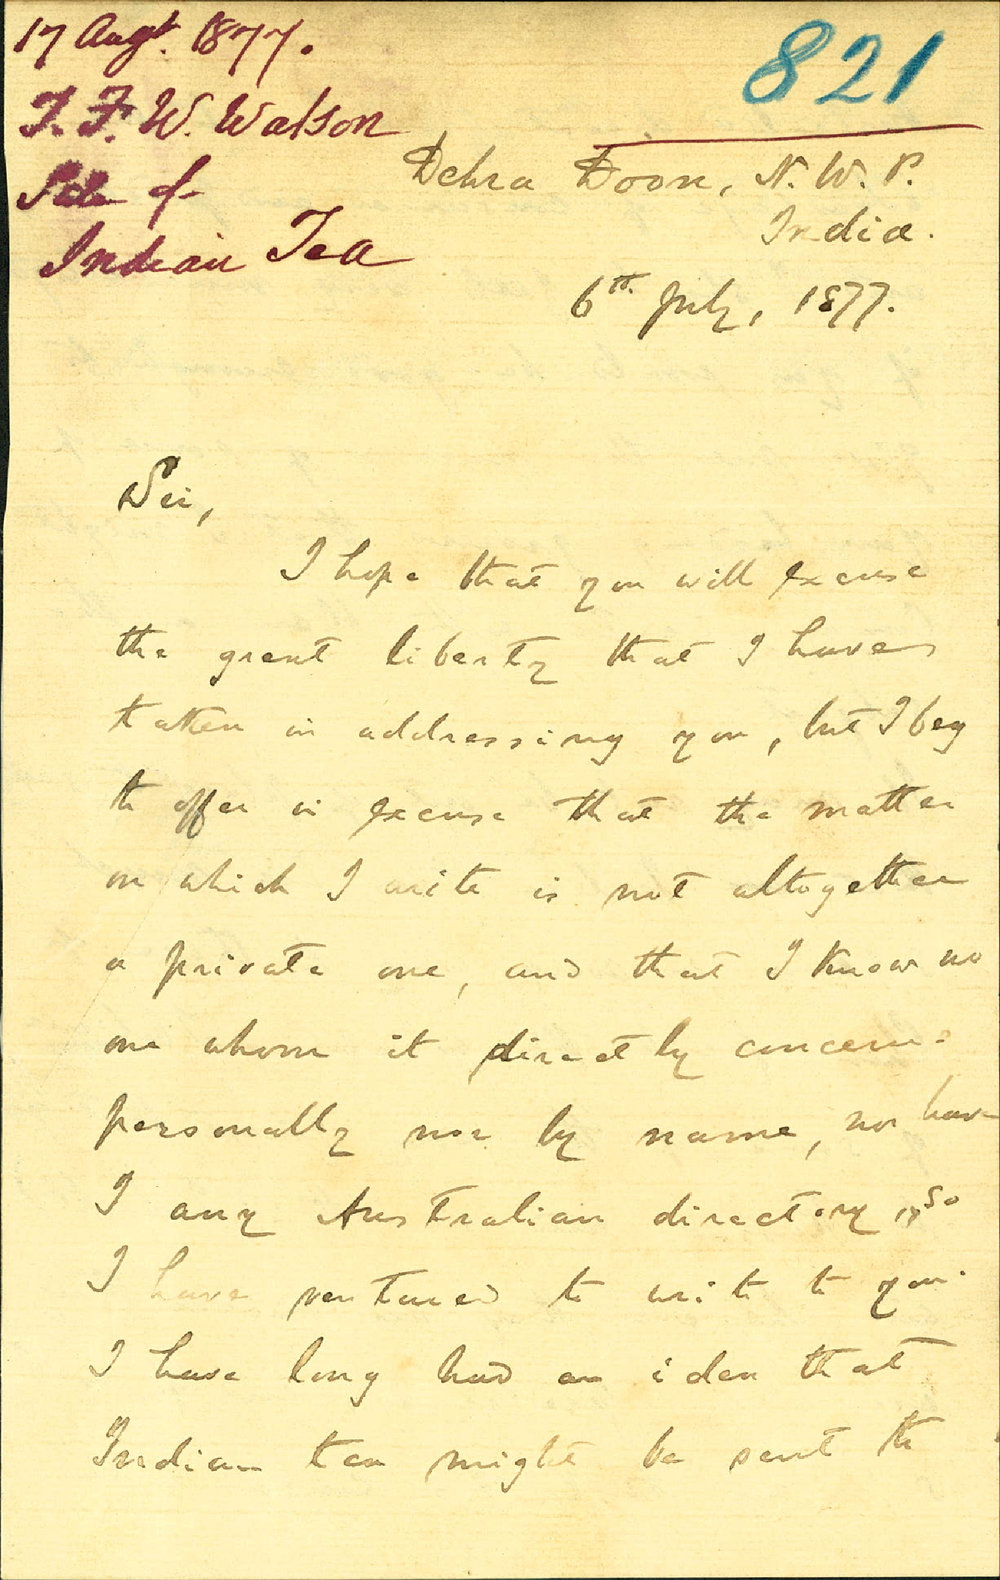 17 Augt. 1877.
821
T. F. W. Watson
Sale of
Indian Tea
Dehra Doon, N. W. P.
India.
6th July, 1877.
Sir,
I hope that you will excuse
the great liberty that I have
taken in addressing you, but I beg
to offer in excuse that the matter
on which I write is not altogether
a private one, and that I know no
one whom it directly concerns
personally nor by name, nor have
I any Australian directory, so
I have ventured to write to you.
I have long had an idea that
Indian tea might be sent to